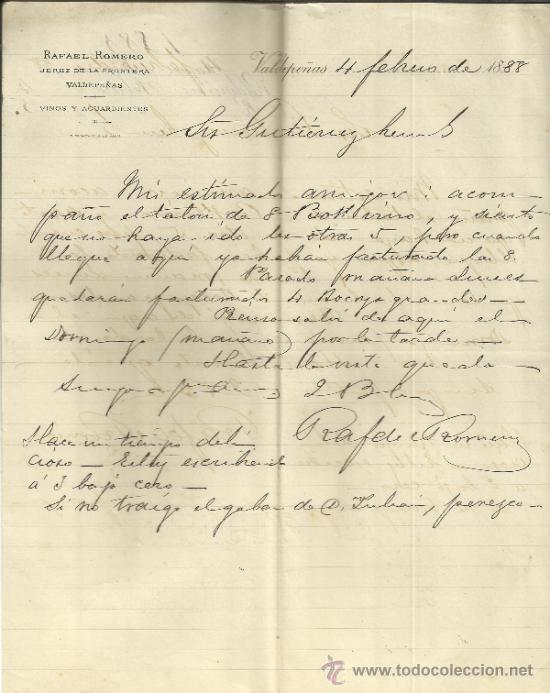 RAFAEL ROMERO
JEREZ DE LA FRONTERA
VALDEPEÑAS
VINOS Y AGUARDIENTES
Valdepeñas 4 febrero de 1888
Gutiérrez
Mis estimados amigos: acom
paño el talon de 8 Bots vino, y siento
que no haya sido los otras 5, pero cuando
llegue aqui ya habian facturado las 8.
Pasado mañana lunes
quedarán facturados 4 Bocoyes grandes —
Pienso salir de aqui el
Domingo (mañana) por la tarde —
Hasta la vista queda
Rafael Romero
Hace un tiempo deli
cioso — Estoy escribiendo
á 3 bajo cero —
Si no traigo el gaban de D. Julian, perezco —
todocoleccion
www.todocoleccion.net